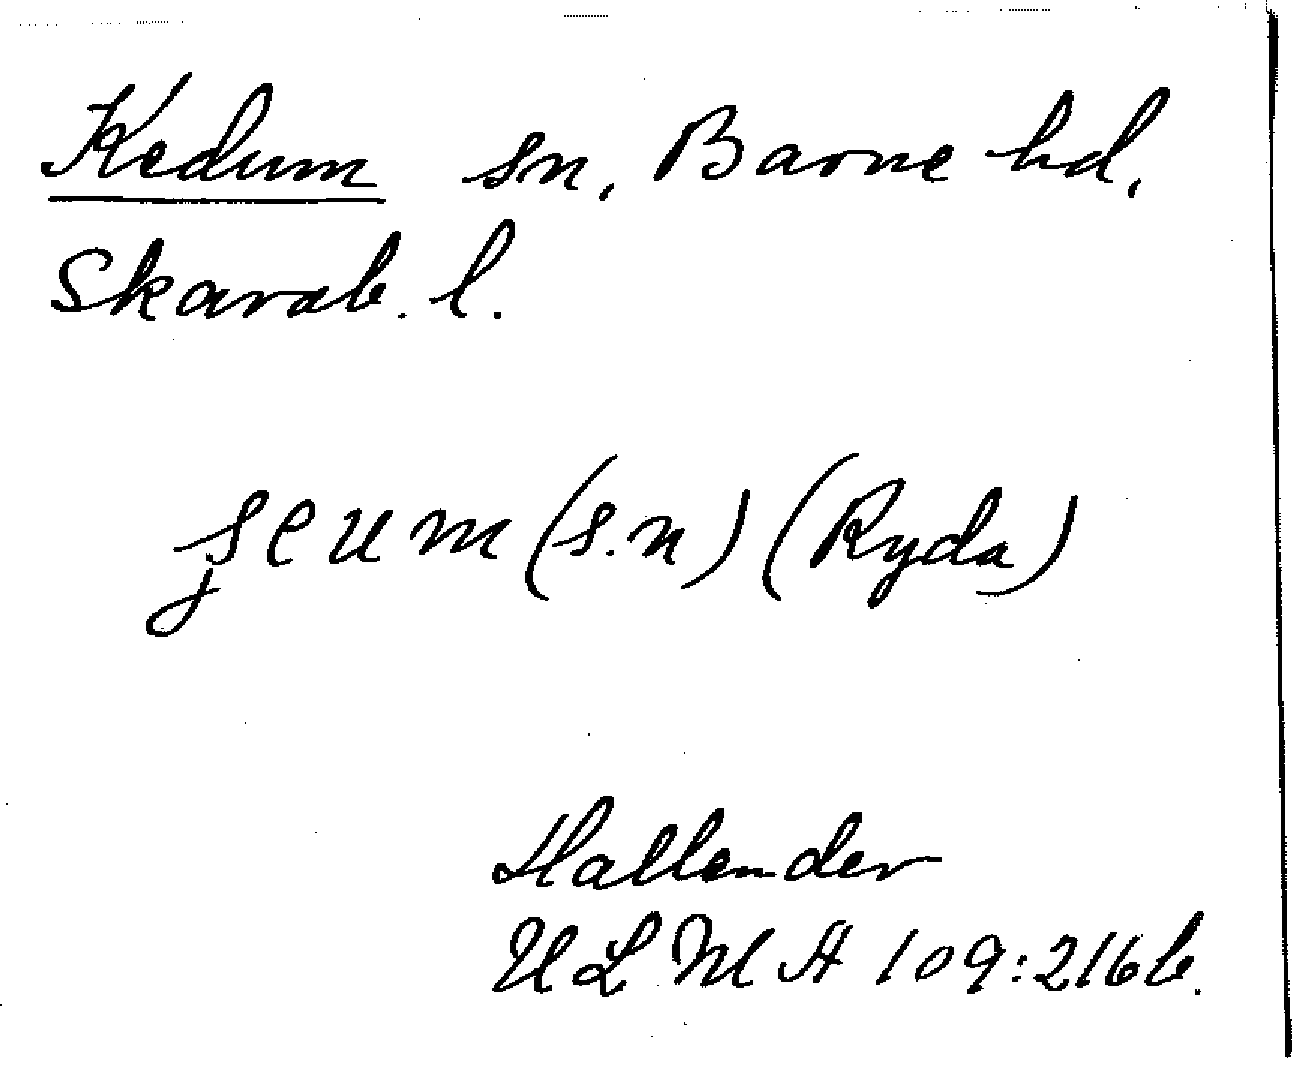 Kedum sn, Barne hd,
Skarab. l.
(s.n) (Ryda)
Hallander
ULMA 109:216 b.